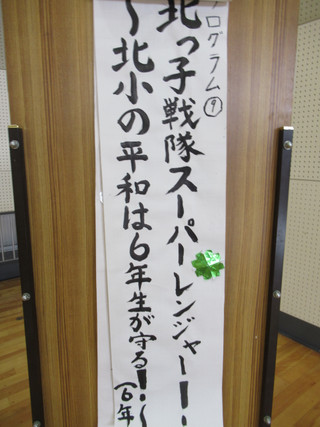 ログラム⑨
北っ子戦隊スーパーレンジャーー
〜北小の平和は6年生が守る!〜
(6年